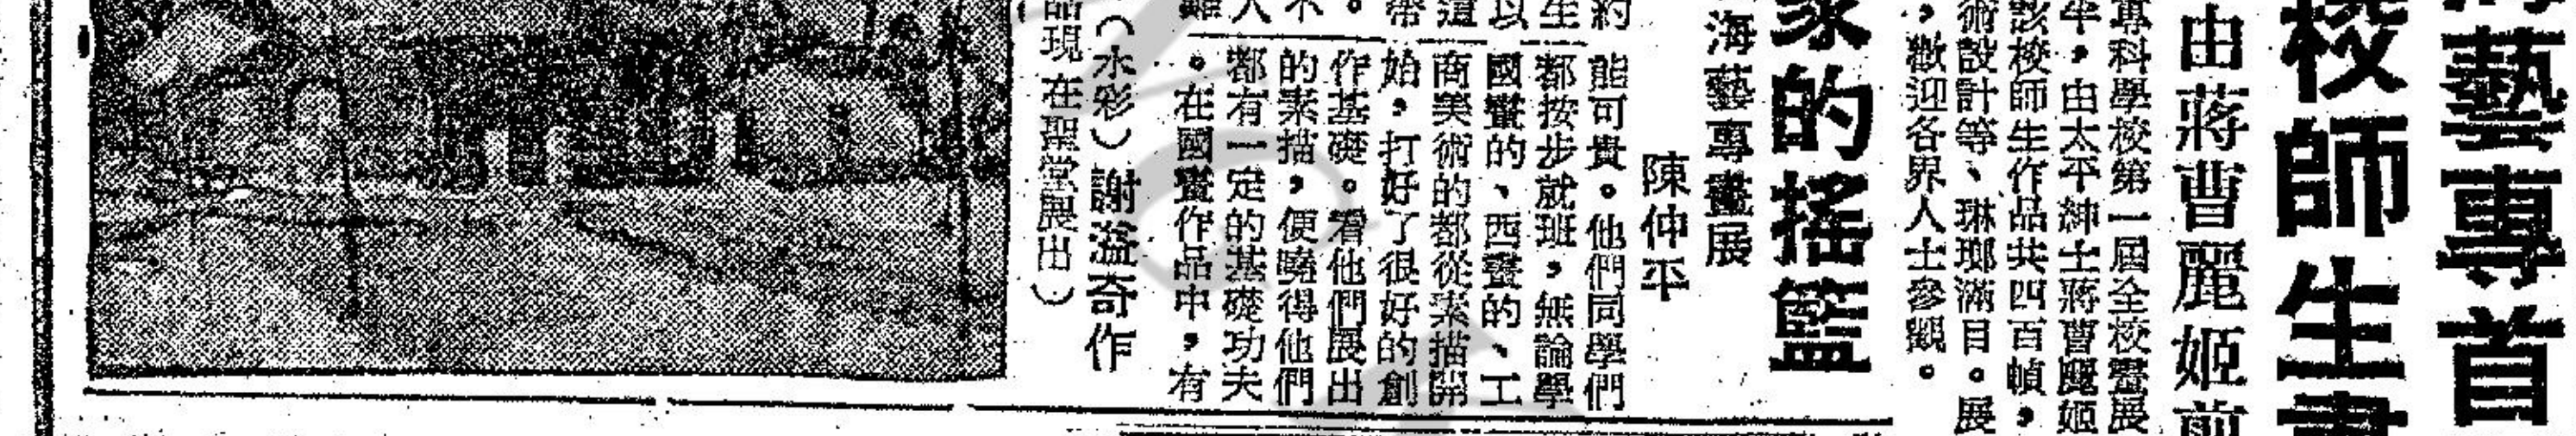 藝專首
校師生畫
由蔣曹麗姬剪
專科學校第一屆全校畫展
半，由太平紳士蔣曹麗姬
該校師生作品共四百幀，
術設計等、琳瑯滿目。展
，歡迎各界人士參觀。
家的搖籃
海藝專畫展
陳仲平
約
生
以
這
。
不
人
能可貴。他們同學們
都按步就班，無論學
國畫的、西畫的、工
商美術的都從素描開
始，打好了很好的創
作基礎。看他們展出
的素描，便曉得他們
都有一定的基礎功夫
。在國畫作品中，有
（水彩）謝溢奇作
品現在聖堂展出）